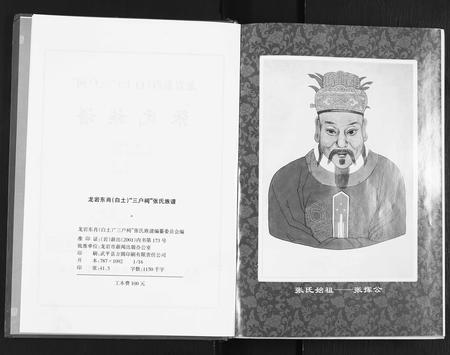 龙岩东肖(白土)“三户祠”张氏族谱
龙岩东肖(白土)“三户祠”张氏族谱编纂委员会编
准 印 证:(岩)新出(2001)内书第173号
批准单位:龙岩市新闻出版办公室
印 刷:武平县方圆印刷有限责任公司
开 本:787×1092 1/16
印 张:41.5 字数:1150千字
工本费 100元
张氏始祖——张挥公